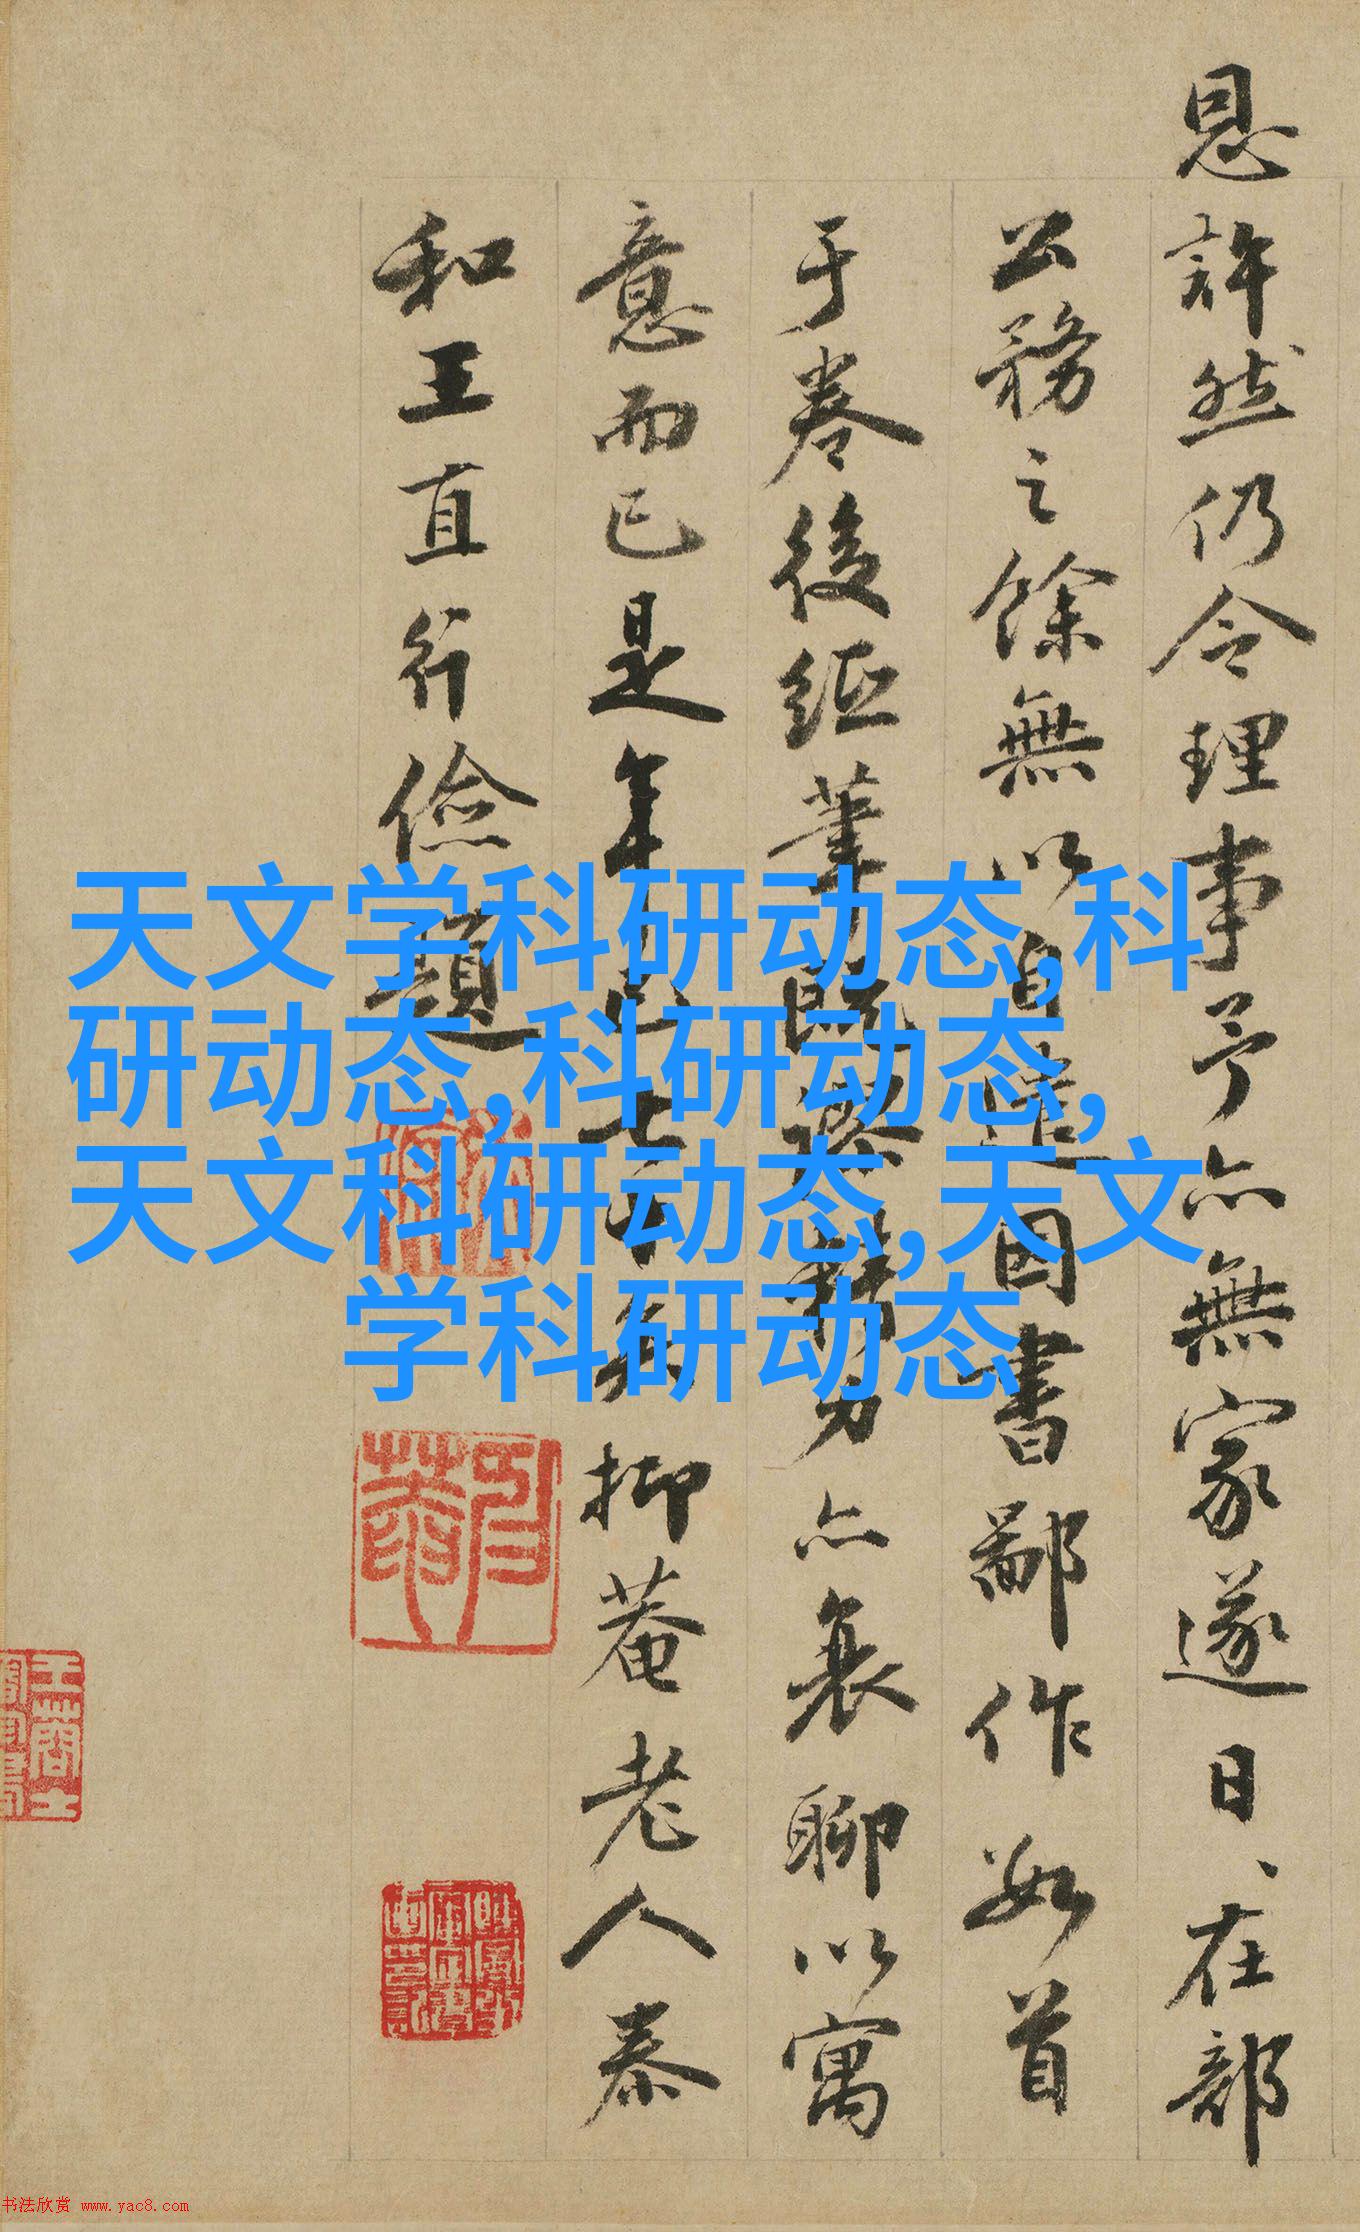 恩許然仍令理事予亦無家遂日、在部
公務之餘無以自遣因書鄙作數首
于卷後紙筆既弊精力亦衰聊以寓
意而已是年七十有五抑菴老人泰
和王直行儉題
天文学科研动态,科
研动态,科研动态,
天文科研动态,天文
学科研动态
书法欣赏 www.yac8.com